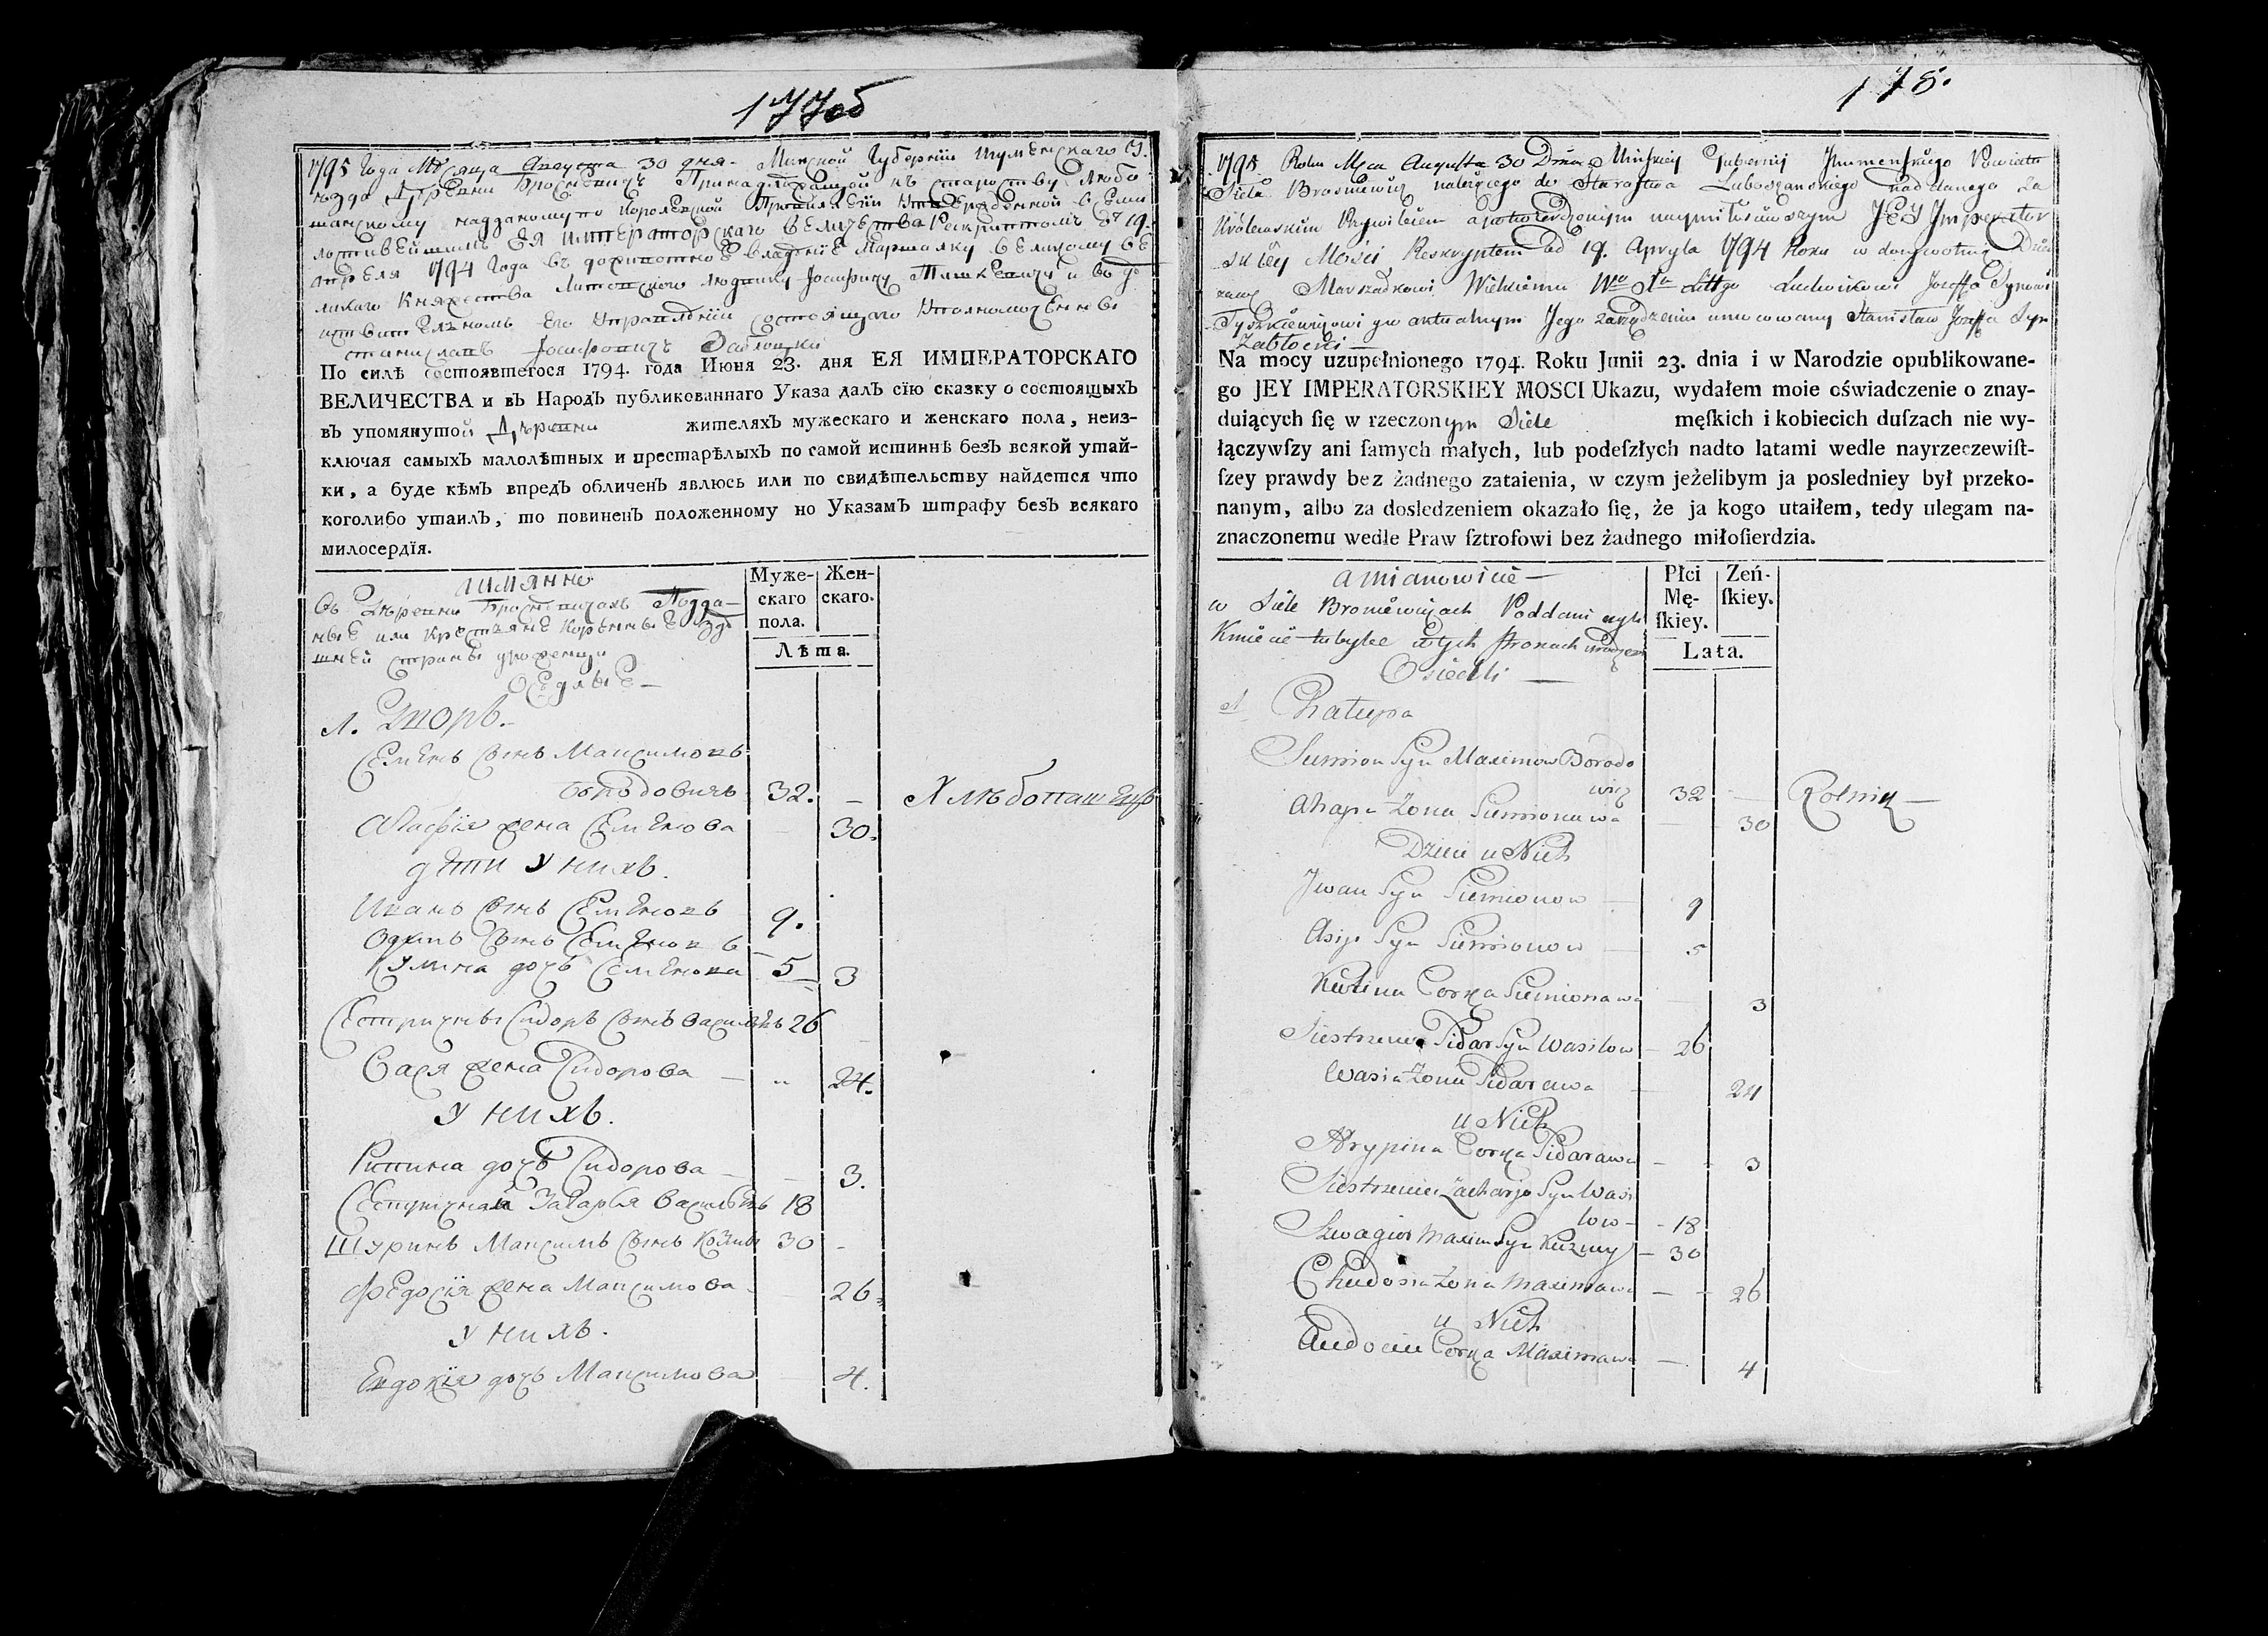 177об
1795 Года Месяца Августа 30 дня Минской Губернии Игуменскаго У-
ѣзда Деревни Броснѣвичъ Принадлежащой къ староству Любо
шанскому надданому по Королевской Привилегии Утвержденной всеми
лостивейшимъ ЕЯ ИМПЕРАТОРСКАГО ВЕЛИЧЕСТВА Рескриптомъ от 19
апреля 1794 Года въ дожизотное владение Маршалку Великому Ве
ликаго Княжества Литовскаго Людвику Іосифину Тишкевичу и въ дѣ
иствителномъ Его Управлении состоящаго Уполномоченны
станиславъ Іосифовичъ Заблоцки
По силѣ состоявшегося 1794. года Июня 23. дня ЕЯ ИМПЕРАТОРСКАГО
ВЕЛИЧЕСТВА и въ Народъ публикованнаго Указа далъ сїю сказку о состоящыхъ
въ упомянутой Деревни жителяхъ мужескаго и женскаго пола, неиз-
ключая самыхъ малолѣтных и престарѣлыхъ по самой истиннѣ безъ всякой утай-
ки, а буде кѣмъ впредъ обличенъ явлюсь или по свидѣтельству найдется что
коголибо утаилъ, то повиненъ положенному но Указамъ штрафу безъ всякаго
милосердїя.
ИМЯННО
Въ Деревни Броснѣвичахъ Подда-
ные или Крестьяне Коренные Зде
шней страны уроженцы
Оседлые
Мужескаго пола. Женскаго.
Лѣта.
1. Дворъ.
Семенъ сынъ Максимовъ
Бородовичъ 32. — Хлѣбопашецъ
Агафія жена Семенова 30.
дети у нихъ.
Иванъ сынъ Семеновъ 9.
сынъ Семеновъ
Кулина дочь Семенова 5 3
Сестричны Сидоръ сынъ Васильевъ 26
Вася жена Сидорова — 24.
у нихъ.
Рипина дочь Сидорова — 3.
Захарья Васильевъ 18
Шуринъ Максимъ сынъ Козмы 30 -
Федосія жена Максимова 26
у нихъ.
Евдокія дочь Максимова 4.
178.
1795 Roku Mca Augusta 30 Dnia Mińskiey Gubernij Jhumenskiego Powiatu
Sieła Brosniewicz należącego do Starostwa Luboszanskiego naddanego za
Królewskim Przywilejem a potwierdzonym naymiłosciwszym JEY Imperator
skiey Mości Reskryptem od 19. Apryla 1794 Roku w dożywotnie Dzier
zawę Marszadkowi Wielkiemu Wo Xa Littgo Ludwikowi Joseffa Synowi
Tyszkiewiczowi w aktualnym Jego zarządzeniu umocowany Stanisław Joseffa Syn
Zabłocki —
Na mocy uzupełnionego 1794. Roku Junii 23. dnia i w Narodzie opublikowane-
go JEY IMPERATORSKIEY MOSCI Ukazu, wydałem moie oświadczenie o znay-
duiących ſię w rzeczonym Siele męſkich i kobiecich duſzach nie wy-
łączywſzy ani ſamych małych, lub podeſzłych nadto latami wedle nayrzeczewiſt-
ſzey prawdy bez żadnego zataienia, w czym jeżelibym ja posledniey był przeko-
nanym, albo za dosledzeniem okazało ſię, że ja kogo utaiłem, tedy ulegam na-
znaczonemu wedle Praw ſztrofowi bez żadnego miłoſierdzia.
a mianowicie —
w Siele Broniewiczach Poddani czyli
Kmiecie tubylce w tych stronach urodzeni
Osiedli —
Płci Mę-ſkiey. Zeń-ſkiey.
Lata.
1 Chatupa
Siemion Syn Maximow Borodo
wicz 32 — Rolnik —
Ahapa Zona Siemionowa — 30
Dzieci u Nich
Jwan Syn Siemionow — 9
Asip Syn Siemionow — 5
Kulina Corka Siemionawa — 3
Siestrzeniec Sidar Syn Wasilow — 26
Wasia Zona Sidarawa — 24
u Nich
Ahrypina Corka Sidarawa — 3
Siestrzeniec Zacharja Syn Wasi
low — 18
Szwagier Maxim Syn Kuzmy — 30
Chwedosia Zona Maximawa — 26
u Nich
Audocia Corka Maximawa — 4